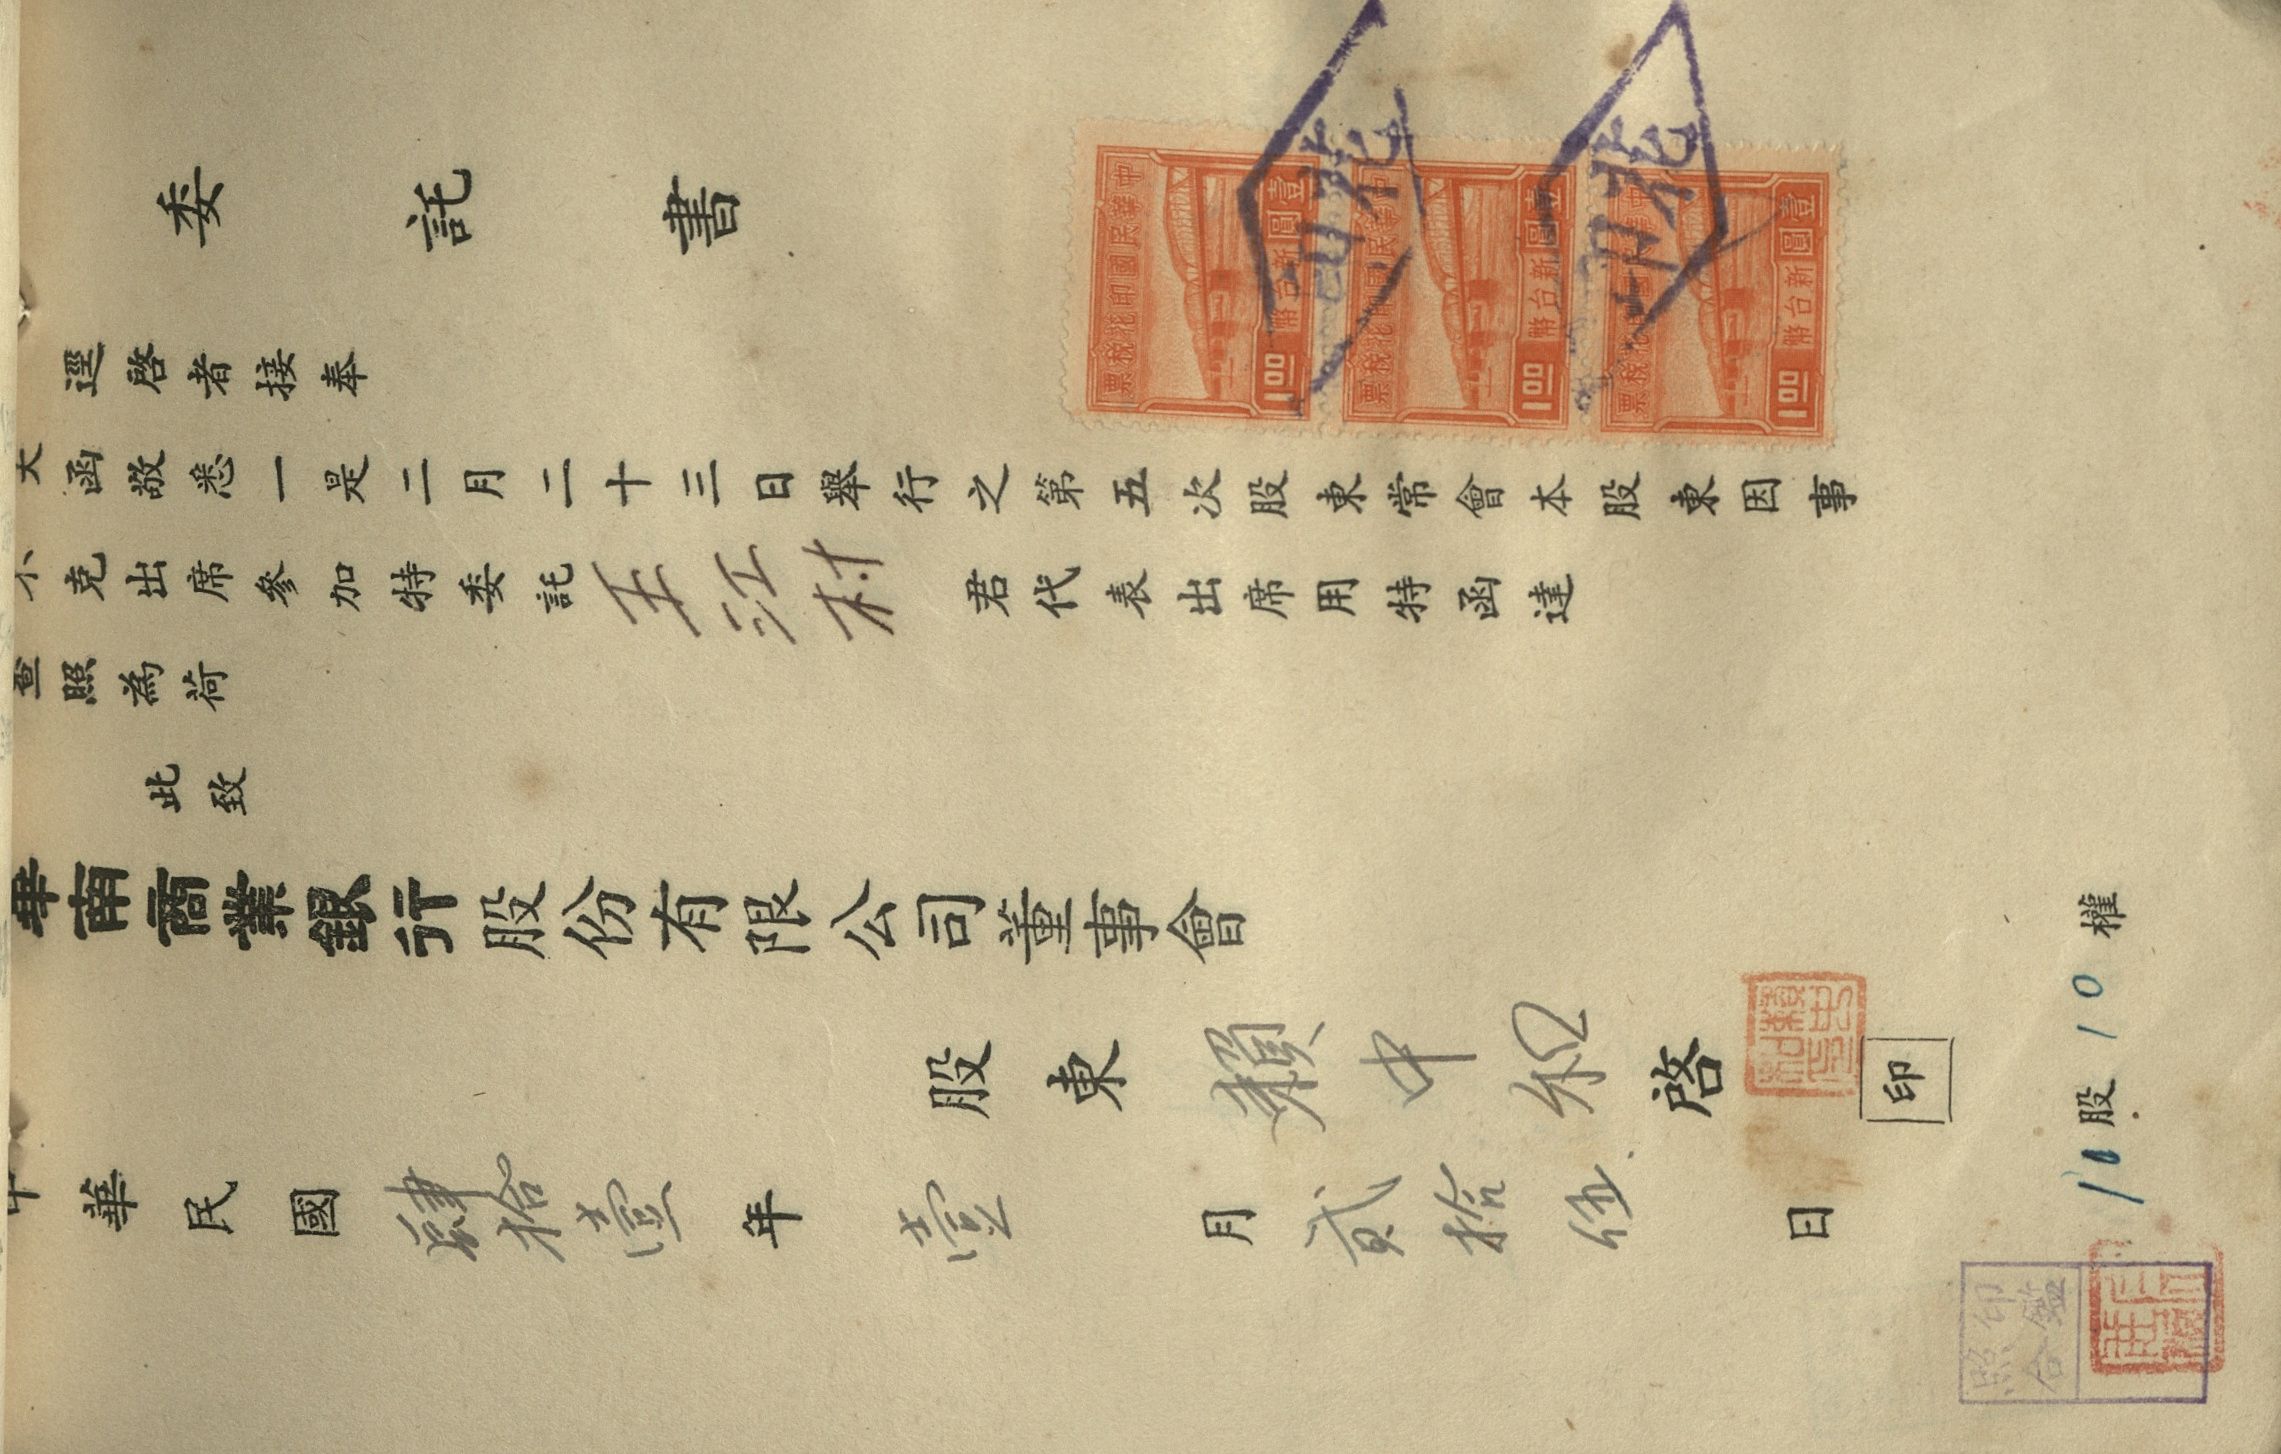 委託書
逕啓者接奉
大函敬悉一是二月二十三日舉行之第五次股東常會本股東因事
不克出席參加特委託王江村君代表出席用特函達
查照為荷
此致
華南商業銀行股份有限公司董事會
股東賴中和啓印
中華民國肆拾壹年壹月貳拾伍日
股10權
中華民國印花稅票
壹圓新台幣
1.00
中華民國印花稅票
壹圓新台幣
1.00
中華民國印花稅票
壹圓新台幣
1.00
印鑑
照合